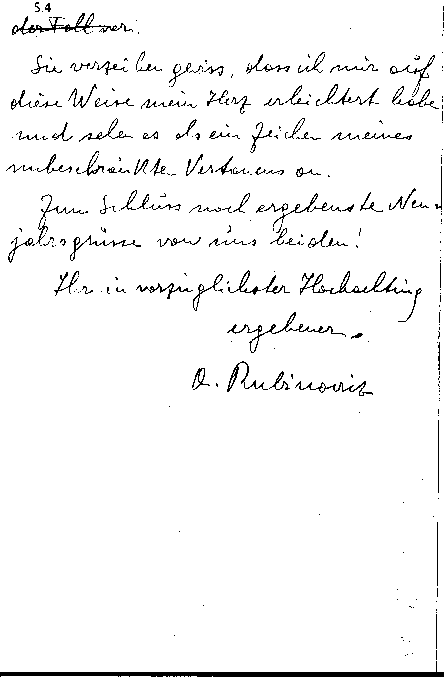 S.4
der Fall war.
Sie verzeihen gewiss, dass ich mir auf
diese Weise mein Herz erleichtert habe
und sehen es als ein Zeichen meines
unbeschränkten Vertrauens an.
Zum Schluss noch ergebenste Neu-
jahrsgrüsse von uns beiden!
Ihr in vorzüglichster Hochachtung
ergebener.
A. Rubinowicz